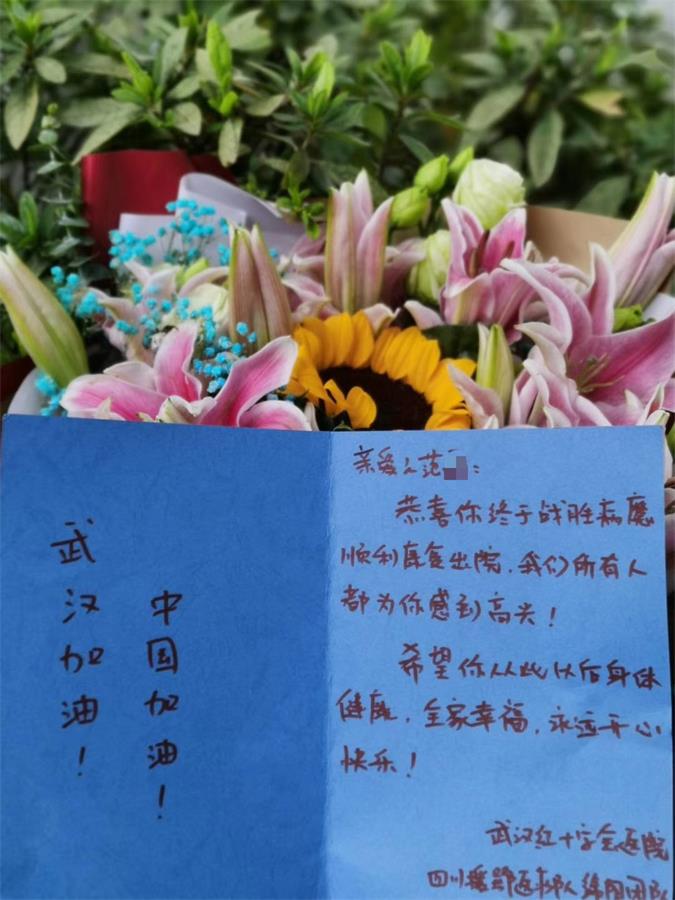 武汉加油！
中国加油！
亲爱的范：
恭喜你终于战胜病魔
顺利康复出院，我们所有人
都为你感到高兴！
希望你从此以后身体
健康，全家幸福，永远开心
快乐！
武汉红十字会医院
四川援鄂医疗队绵阳团队